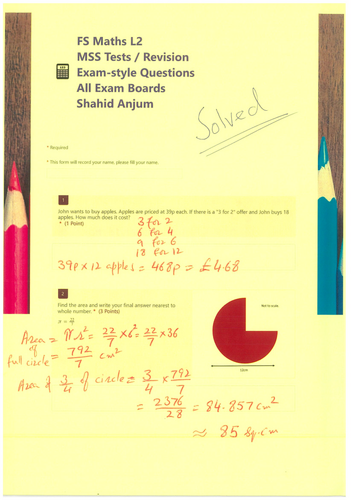 FS Maths L2
MSS Tests / Revision
Exam-style Questions
All Exam Boards
Shahid Anjum
Solved
* Required
* This form will record your name, please fill your name.
1
John wants to buy apples. Apples are priced at 39p each. If there is a "3 for 2" offer and John buys 18
apples. How much does it cost?
* (1 Point)
3 for 2
6 for 4
9 for 6
18 for 12
39p x 12 apples = 468p = £4.68
2
Find the area and write your final answer nearest to
whole number. * (3 Points)
Not to scale
12cm
Area = πr² = 22/7 x 6² = 22/7 x 36
of
full circle = 792/7 cm²
Area of 3/4 of circle = 3/4 x 792/7
= 2376/28 = 84.857 cm²
≈ 85 sq.cm